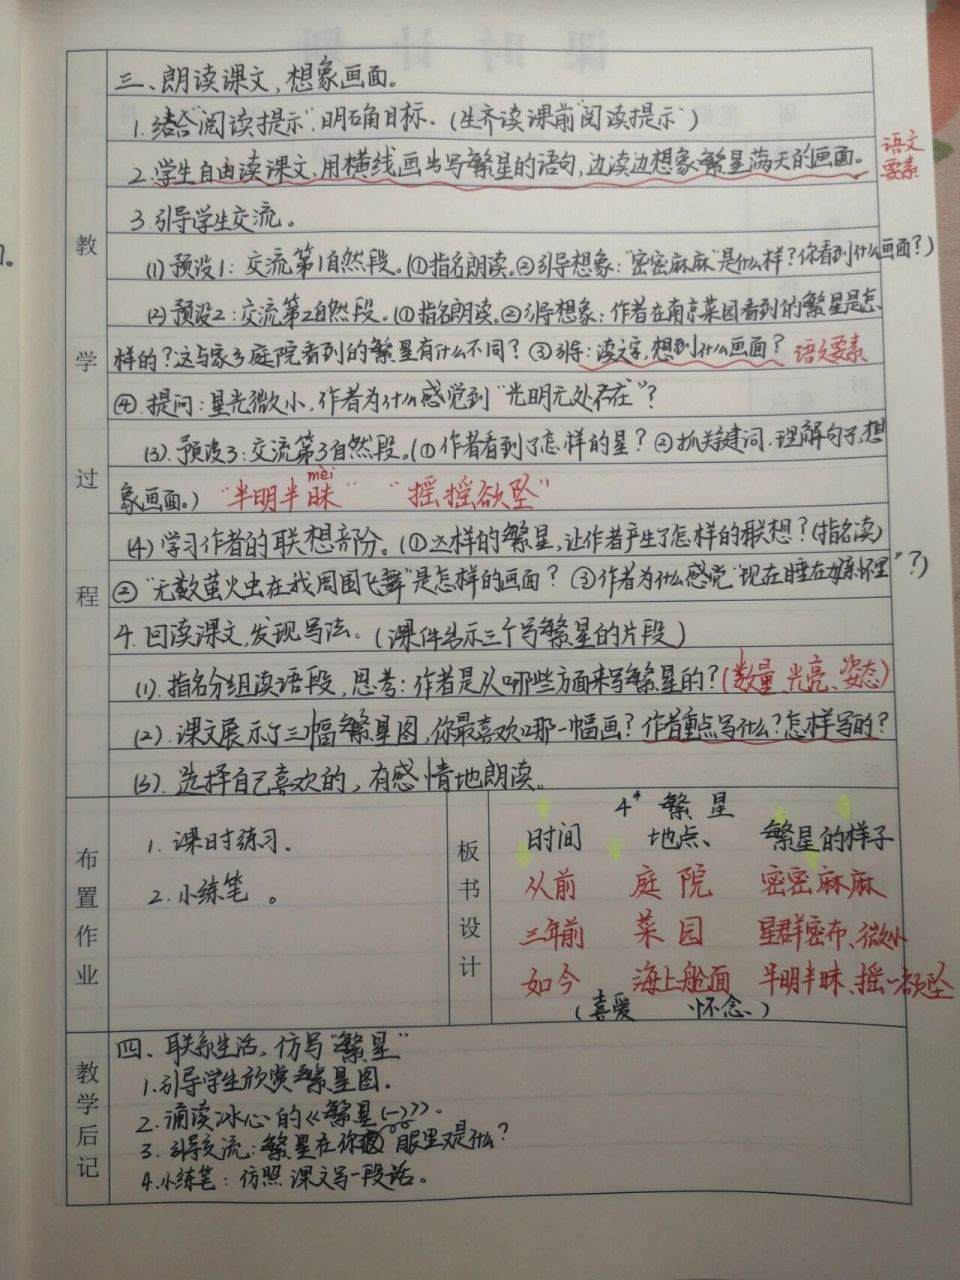 三、朗读课文,想象画面。
1.结合“阅读提示”,明确目标。(生齐读课前“阅读提示”)
2.学生自由读课文,用横线画出写繁星的语句,边读边想象繁星满天的画面。 语文
要素
3.引导学生交流。
(1)预设1:交流第1自然段。(①指名朗读。②引导想象:“密密麻麻”是什么样?你看到什么画面?)
(2)预设2:交流第2自然段。①指名朗读。②引导想象:作者在南京菜园看到的繁星是怎
样的?这与家乡庭院看到的繁星有什么不同?③引导:读文字,想到什么画面? 语文要素
④提问:星光微小,作者为什么感觉到“光明无处不在”?
(3).预设3:交流第3自然段。(①作者看到了怎样的星?②抓关键词,理解句子,想
象画面。)“半明半昧” “摇摇欲坠”
mèi
(4)学习作者的联想部分。(①这样的繁星,让作者产生了怎样的联想?(指名读)
②“无数萤火虫在我周围飞舞”是怎样的画面?③作者为什么感觉“现在睡在母亲怀里”?)
4.回读课文,发现写法。(课件出示三个写繁星的片段)
(1).指名分组读语段,思考:作者是从哪些方面来写繁星的?(数量、光亮、姿态)
(2).课文展示了三幅繁星图,你最喜欢哪一幅画?作者重点写什么?怎样写的?
(3).选择自己喜欢的,有感情地朗读。
教学过程
布置作业
1.课时练习。
2.小练笔。
板书设计
4* 繁星
时间 地点、 繁星的样子
从前 庭院 密密麻麻
三年前 菜园 星群密布、微小
如今 海上舱面 半明半昧、摇摇欲坠
(喜爱 怀念、)
教学后记
四、联系生活,仿写“繁星”
1.引导学生欣赏繁星图.
2.诵读冰心的《繁星(一)》。
3.引导交流:繁星在你 眼里又是什么?
4.小练笔:仿照课文写一段话。